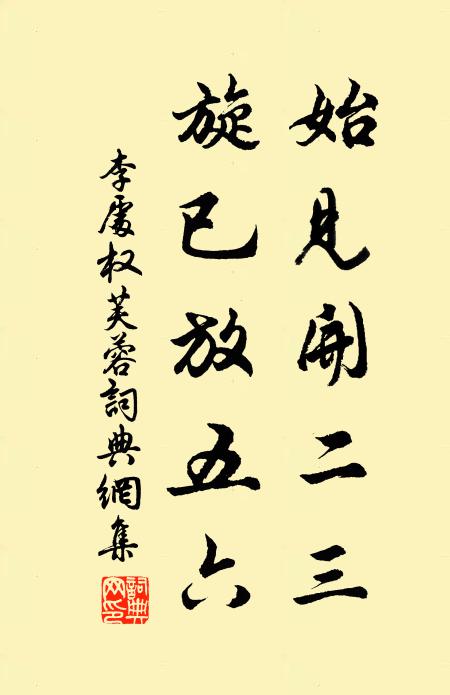 始見開二三
旋已放五六
李處权芙蓉詞典網集
詞典网印